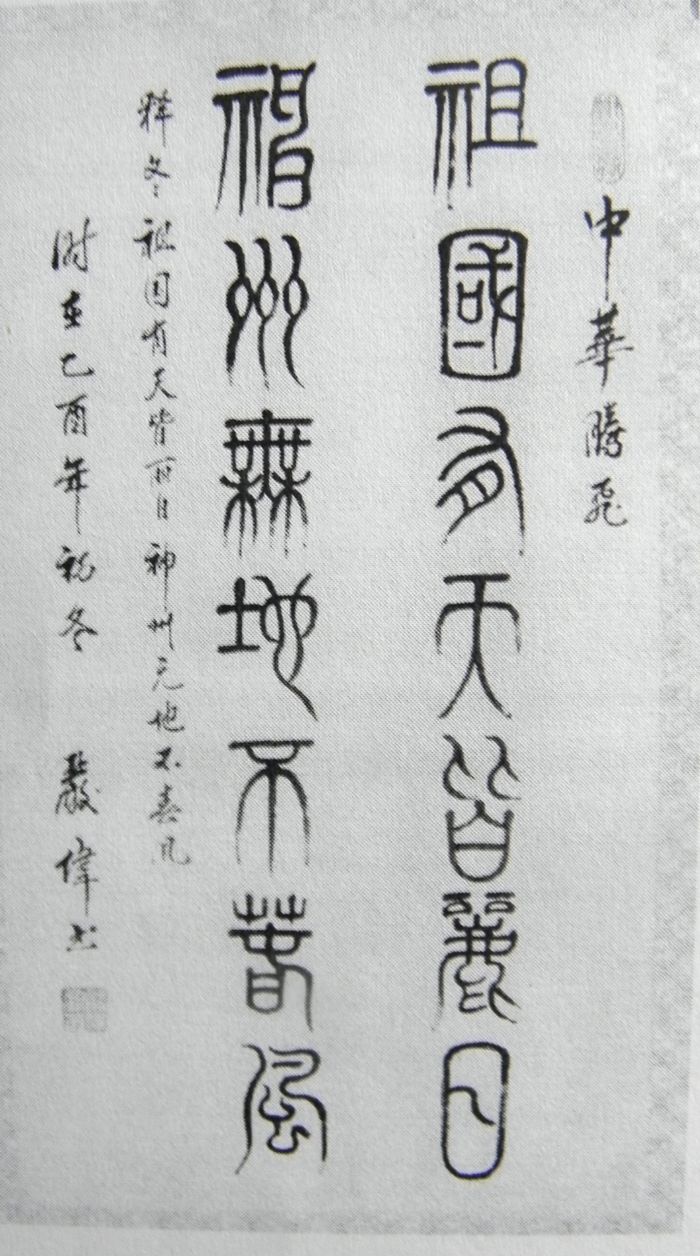 中華騰飛
祖國有天皆麗日
神州無地不春風
释文 祖国有天皆丽日 神州无地不春风
时在乙酉年初冬 嚴偉书